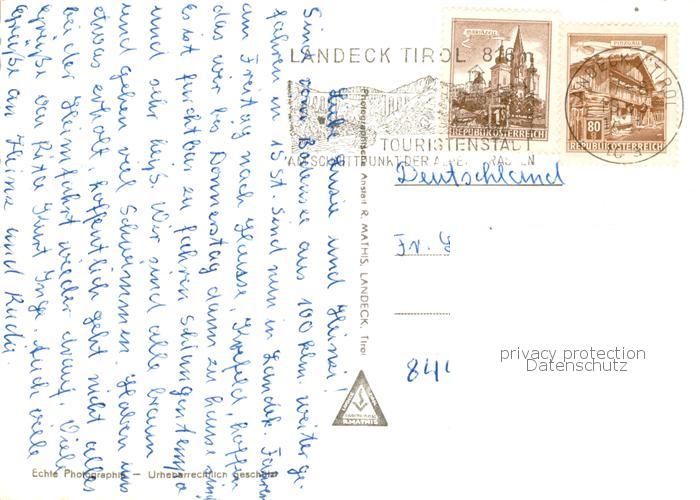 LANDECK TIROL 816m
TOURISTENSTADT
AM SCHNITTPUNKT DER ALPENSTRASSEN
MARIAZELL
1S
REPUBLIK ÖSTERREICH
PINZGAU
80
REPUBLIK ÖSTERREICH
LANDECK TIROL
Deutschland
Fr.
privacy protection
Datenschutz
Photographische Anstalt R. MATHIS, LANDECK, Tirol
R.MATHIS
Echte Photographie — Urheberrechtlich geschützt
Liebe und Heinz!
Sind vom Bodensee aus 100 klm. weiter ge-
fahren in 13 St. Sind nun in Landek. Fahren
am Freitag nach Hause, hoffen
das wir bis Donnerstag dann zu hause sind
es ist furchtbar zu fahren
und sehr heiß. Wir sind alle braun
und gehen viel Schwimmen. Haben uns
etwas erholt, hoffentlich geht nicht alles
bei der Heimfahrt wieder drauf. Viele
Grüße von Rita Kurt Inge. Auch viele
Grüße an Heinz und Rudi.